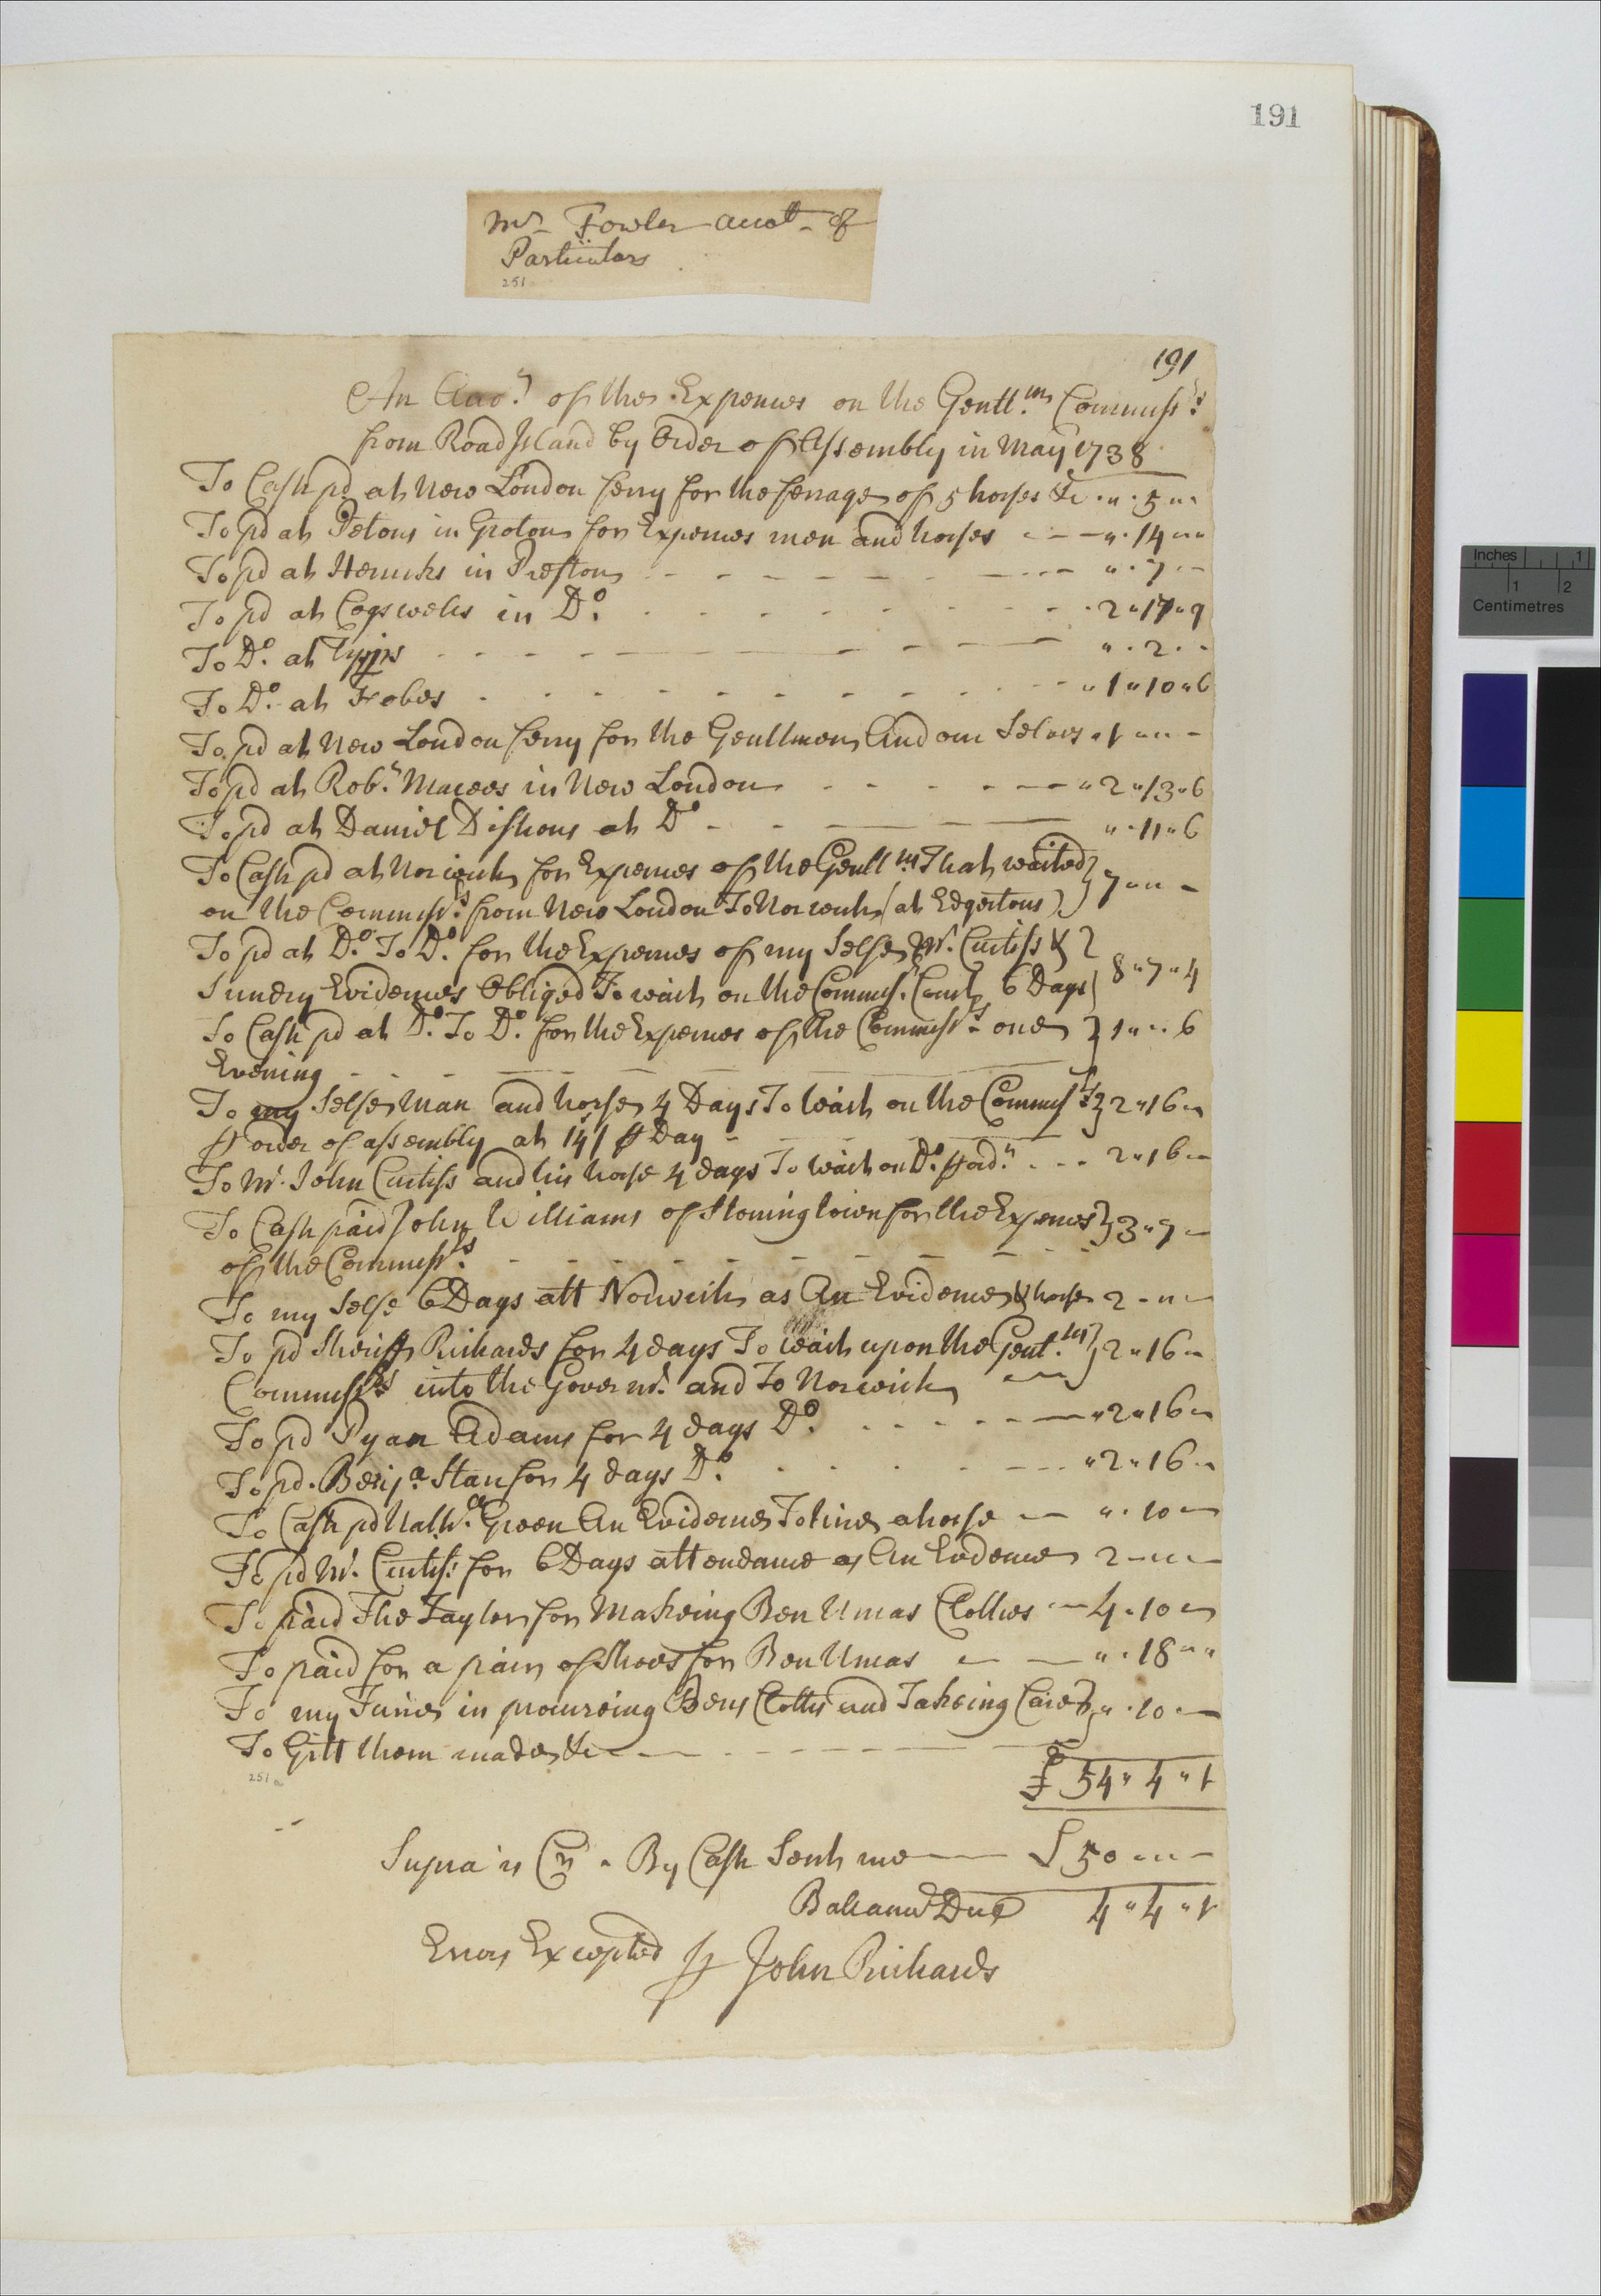 191
Mr Fowler acct of
Particulars
251
191
An Acct. of the Expences on the Gentlm. Commissrs.
from Road Island by Order of Assembly in May 1738
To Cash pd at New London ferry for the ferrage of 5 horses &c " 5 " "
To pd at in Groton for Expences men and horses - - " 14 " "
To pd at in Preston - - - - " 7 - -
To pd at Cogswels in Do. - - - - 2 " 17 " 9
To Do. at - - - - " 2 - -
To Do. at Fobes - - - - " 1 " 10 " 6
To pd at New London ferry for the Gentlmen And our Selves " 1 " " -
To pd at Robt. in New London - - - - " 2 " 13 " 6
To pd at Daniel Dishons at Do - - - - " 11 " 6
To Cash pd at Norwich for Expences of the Gentlm. That waited } 7 " " -
on the Commissrs. from New London To Norwich (at Edgertons) }
To pd at Do. To Do. for the Expences of my Selfe Mr. Curtiss & }
Sundry Evidences Obliged To wait on the Commissr. Court 6 Days } 8 " 7 " 4
To Cash pd at Do. To Do. for the Expences of the Commissrs. one } 1 " " 6
Evening - - - -
To my Selfe man and horse 4 Days To wait on the Commissrs. } 2 " 16 "
pr order of assembly at 14/ pr Day -
To Mr. John Curtiss and his horse 4 days To wait on Do. pr ordr. - - - 2 " 16 " -
To Cash paid John Williams of Stoningtown for the Expences } 3 " 7 -
of the Commissrs. - - - -
To my Selfe 6 Days att Norwich as An Evidence & horse 2 - " -
To pd Sheriff Richards for 4 days To wait upon the Gentlm. } 2 " 16 "
Commissrs into the Governt. and To Norwich
To pd Pyan Adams for 4 days Do. - - - - " 2 " 16 "
To pd. Benja. Star for 4 days Do. - - - - " 2 " 16 "
To Cash pd Nathll. Green An Evidence To hire a horse - " 10 -
To pd Mr. Curtiss for 6 Days attendance as An Evidence 2 - " -
To paid The Taylor for Makeing Ben Uncas Clothes - 4 " 10 -
To paid for a pair of Shoes for Ben Uncas - - " 18 " "
To my Time in procureing Bens Cloths and Takeing Care } " 10 " -
To Gitt them made &c - - - -
251a
£ 54 " 4 " 1
Supra is Cr. By Cash Sent me - £ 50 " " -
Ballance Due 4 " 4 " 1
Errors Excepted pr John Richards